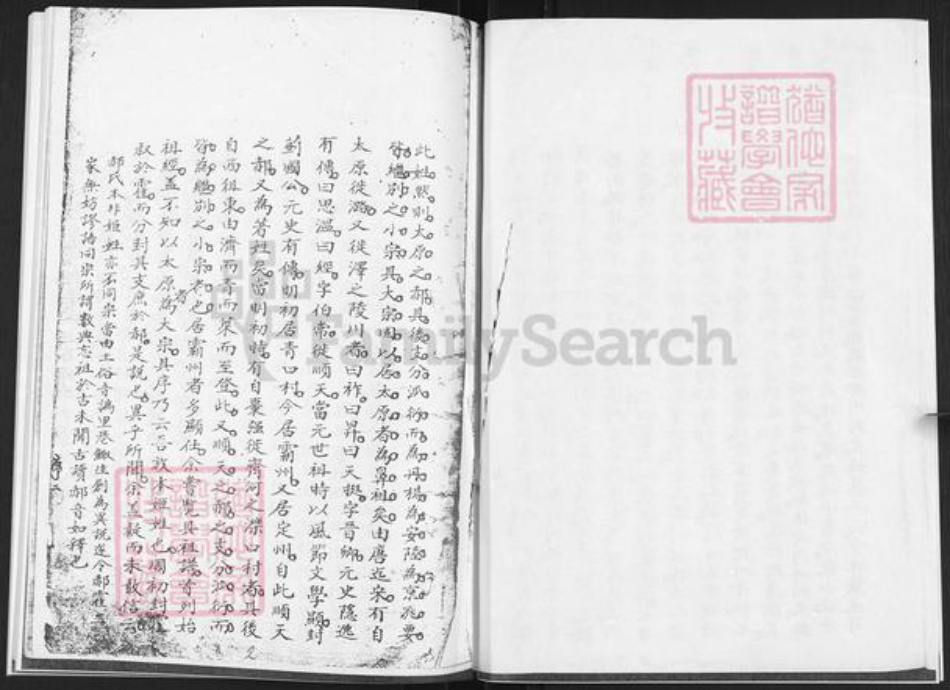 此姓然則太原之郝其後支分派衍而為丹楊為安陸為京兆要
皆繼別之小宗其大宗固以居太原者為鼻祖矣由唐迄宋有自
太原徙潞又徙澤之陵川者曰祚曰昇曰天挺字晉卿元史隱逸
有傳曰思溫曰經字伯常徙順天當元世祖時以風節文學顯封
薊國公元史有傳明初居青口村今居霸州又居定州自此順天
之郝又為著姓矣當明初時有自棗強徙齊河之潔口村者其後
自西徂東由濟而青而萊而至登此又順天之郝之支分派衍而
皆為繼別之小宗者也居霸州者多顯仕余嘗覽其祖譜首列始
祖經蓋不知以太原為大宗其序乃云吾族本姬姓也周初封
叔於霍而分封其支庶於郝是說也異乎所聞余蓋疑而未敢信云
郝氏本非姬姓亦不同宗當由土俗音譌里巷鯫生創為異說遂令郝霍
家無妨謬語同宗所謂數典忘祖於古未聞古讀郝音如釋也
序二
猶他家
譜學會
收藏
FamilySearch